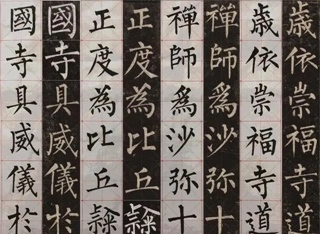 歲依崇福寺道
歲依崇福寺道
禪師為沙弥十
禪師為沙弥十
正度為比丘隸
正度為比丘隸
國寺具威儀於
國寺具威儀於